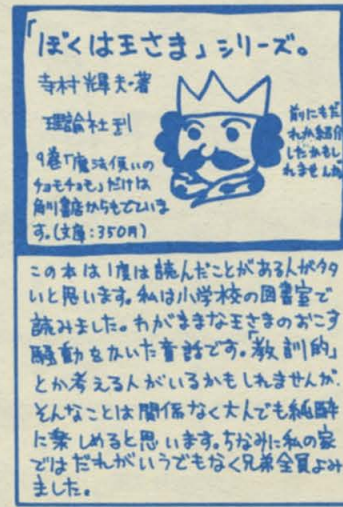 「ぼくは王さま」シリーズ。
寺村輝夫・著
理論社刊
9巻「魔法使いの
チョモチョモ」だけは
角川書店からもでていま
す。(文庫：350円)
前にもだ
れか紹介
したかもし
れませんが
この本は1度は読んだことがある人が多
いと思います。私は小学校の図書室で
読みました。わがままな王さまのおこす
騒動をかいた童話です。「教訓的」
とか考える人がいるかもしれませんが、
そんなことは関係なく大人でも純粋
に楽しめると思います。ちなみに私の家
ではだれがいうでもなく兄弟全員よみ
ました。